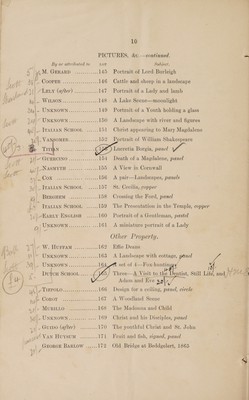 10
PICTURES, &c.—continued.
By or attributed to LOT Subject.
M. GERARD 145 Portrait of Lord Burleigh
COOPER 146 Cattle and sheep in a landscape
LELY (after) 147 Portrait of a Lady and lamb
WILSON 148 A Lake Scene—moonlight
UNKNOWN 149 Portrait of a Youth holding a glass
UNKNOWN 150 A Landscape with river and figures
ITALIAN SCHOOL 151 Christ appearing to Mary Magdalene
VANSOMER 152 Portrait of William Shakespeare
TITIAN 153 Lucretia Borgia, panel
GUERCINO 154 Death of a Magdalene, panel
NASMYTH 155 A View in Cornwall
COX 156 A pair—Landscapes, panels
ITALIAN SCHOOL 157 St. Cecilia, copper
BERGHEM 158 Crossing the Ford, panel
ITALIAN SCHOOL 159 The Presentation in the Temple, copper
EARLY ENGLISH 160 Portrait of a Gentleman, pastel
UNKNOWN 161 A miniature portrait of a Lady
Other Property.
W. HUFFAM 162 Effie Deans
UNKNOWN 163 A Landscape with cottage, panel
UNKNOWN 164 A set of 4—Fox hunting
DUTCH SCHOOL 165 Three—A Visit to the Dentist, Still Life, and
Adam and Eve
TIEPOLO 166 Design for a ceiling, panel, circle
COROT 167 A Woodland Scene
MURILLO 168 The Madonna and Child
UNKNOWN 169 Christ and his Disciples, panel
GUIDO (after) 170 The youthful Christ and St. John
VAN HUYSUM 171 Fruit and fish, signed, panel
GEORGE BARLOW 172 Old Bridge at Beddgelert, 1865